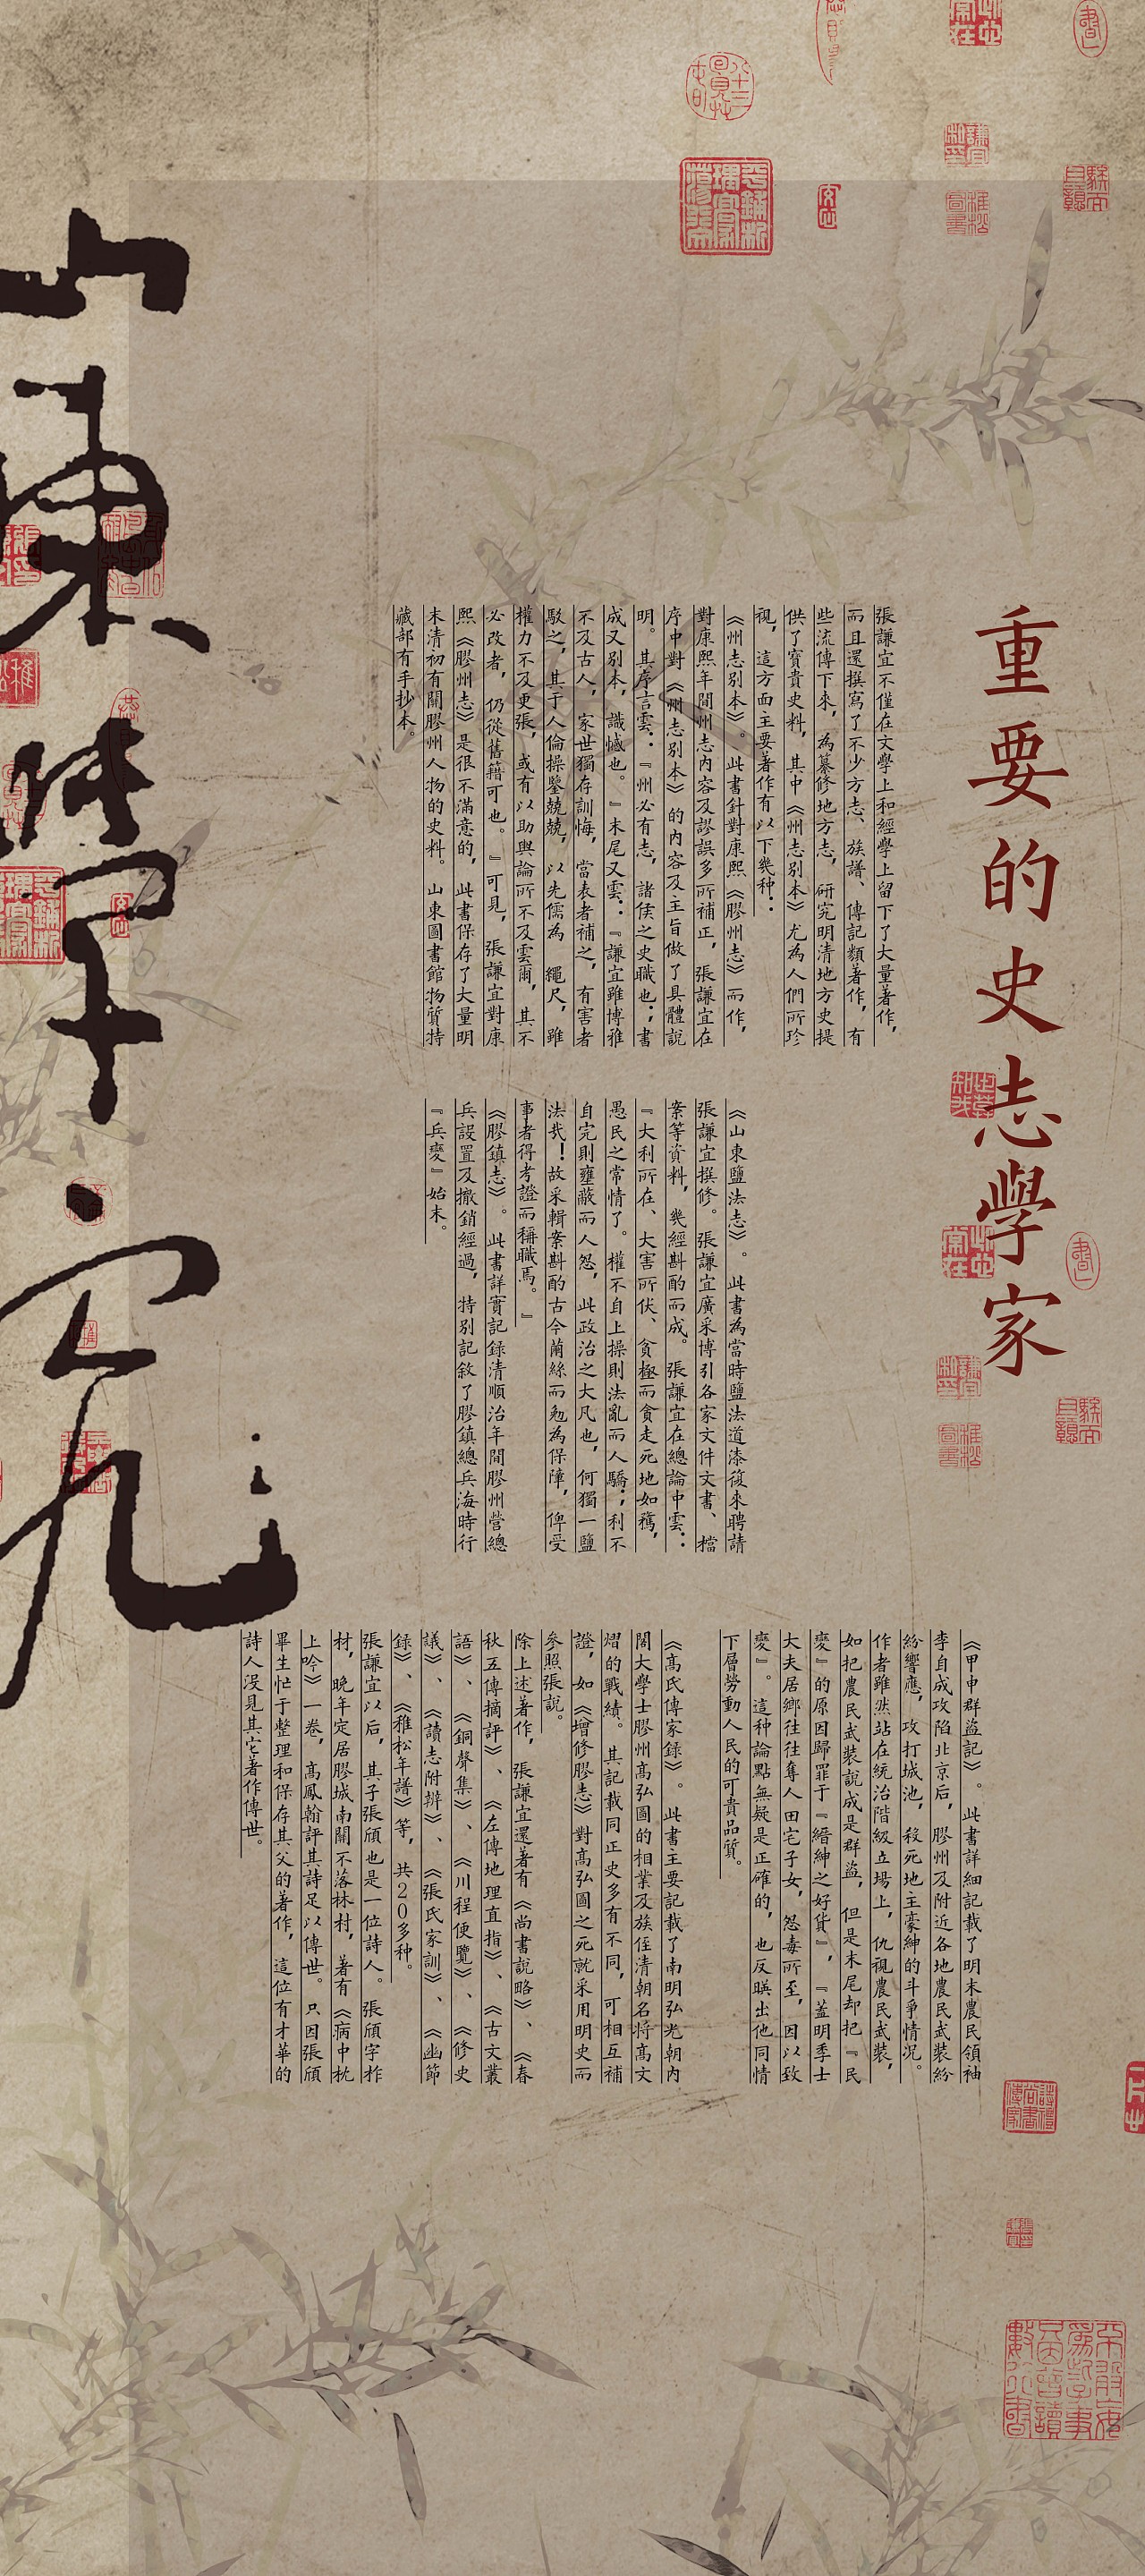 重要的史志學家
張謙宜不僅在文學上和經學上留下了大量著作,
而且還撰寫了不少方志、族譜、傳記類著作,有
些流傳下來,為纂修地方志,研究明清地方史提
供了寶貴史料,其中《州志別本》尤為人們所珍
視,這方面主要著作有以下幾种:
《州志別本》。此書針對康熙《膠州志》而作,
對康熙年間州志內容及謬誤多所補正,張謙宜在
序中對《州志別本》的內容及主旨做了具體說
明。其序言雲:『州必有志,諸侯之史職也;書
成又別本,識憾也。』末尾又雲:『謙宜雖博雅
不及古人,家世獨存訓悔,當表者補之,有害者
駁之,其于人倫操鑒兢兢,以先儒為 繩尺,雖
權力不及更張,或有以助輿論所不及雲爾,其不
必改者,仍從舊籍可也。』可見,張謙宜對康
熙《膠州志》是很不滿意的,此書保存了大量明
末清初有關膠州人物的史料。山東圖書館物質特
藏部有手抄本。
《山東鹽法志》。此書為當時鹽法道漆復來聘請
張謙宜撰修。張謙宜廣采博引各家文件文書、檔
案等資料,幾經斟酌而成。張謙宜在總論中雲:
『大利所在、大害所伏、貪極而貪走死地如鶩,
愚民之常情了。權不自上操則法亂而人驕;利不
自完則壅蔽而人怨,此政治之大凡也,何獨一鹽
法哉!故采輯案斟酌古今繭絲而勉為保障,俾受
事者得考證而稱職焉。』
《膠鎮志》。此書詳實記錄清順治年間膠州營總
兵設置及撤銷經過,特別記敘了膠鎮總兵海時行
『兵變』始末。
《甲申群盜記》。此書詳細記載了明末農民領袖
李自成攻陷北京后,膠州及附近各地農民武裝紛
紛響應,攻打城池,殺死地主豪紳的斗爭情況。
作者雖然站在統治階級立場上,仇視農民武裝,
如把農民武裝說成是群盜,但是末尾却把『民
變』的原因歸罪于『縉紳之好貨』,『蓋明季士
大夫居鄉往往奪人田宅子女,怨毒所至,因以致
變』。這种論點無疑是正確的,也反映出他同情
下層勞動人民的可貴品質。
《高氏傳家錄》。此書主要記載了南明弘光朝內
閣大學士膠州高弘圖的相業及族侄清朝名将高文
熠的戰績。其記載同正史多有不同,可相互補
證,如《增修膠志》對高弘圖之死就采用明史而
參照張說。
除上述著作,張謙宜還著有《尚書說略》、《春
秋五傳摘評》、《左傳地理直指》、《古文叢
語》、《銅聲集》、《川程便覽》、《修史
議》、《讀志附辨》、《張氏家訓》、《幽節
錄》、《稚松年譜》等,共20多种。
張謙宜以后,其子張頎也是一位詩人。張頎字柞
材,晚年定居膠城南關不落林村,著有《病中枕
上吟》一卷,高鳳翰評其詩足以傳世。只因張頎
畢生忙于整理和保存其父的著作,這位有才華的
詩人沒見其它著作傳世。